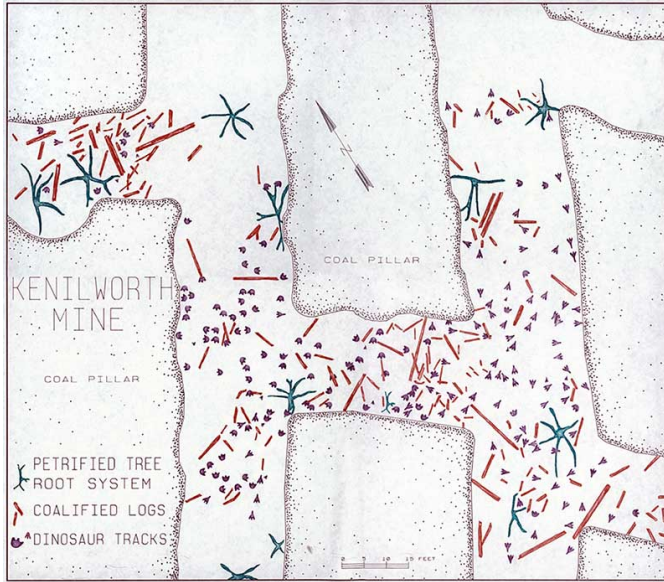 COAL PILLAR
KENILWORTH
MINE
COAL PILLAR
PETRIFIED TREE
ROOT SYSTEM
COALIFIED LOGS
DINOSAUR TRACKS
0 5 10 15 FEET